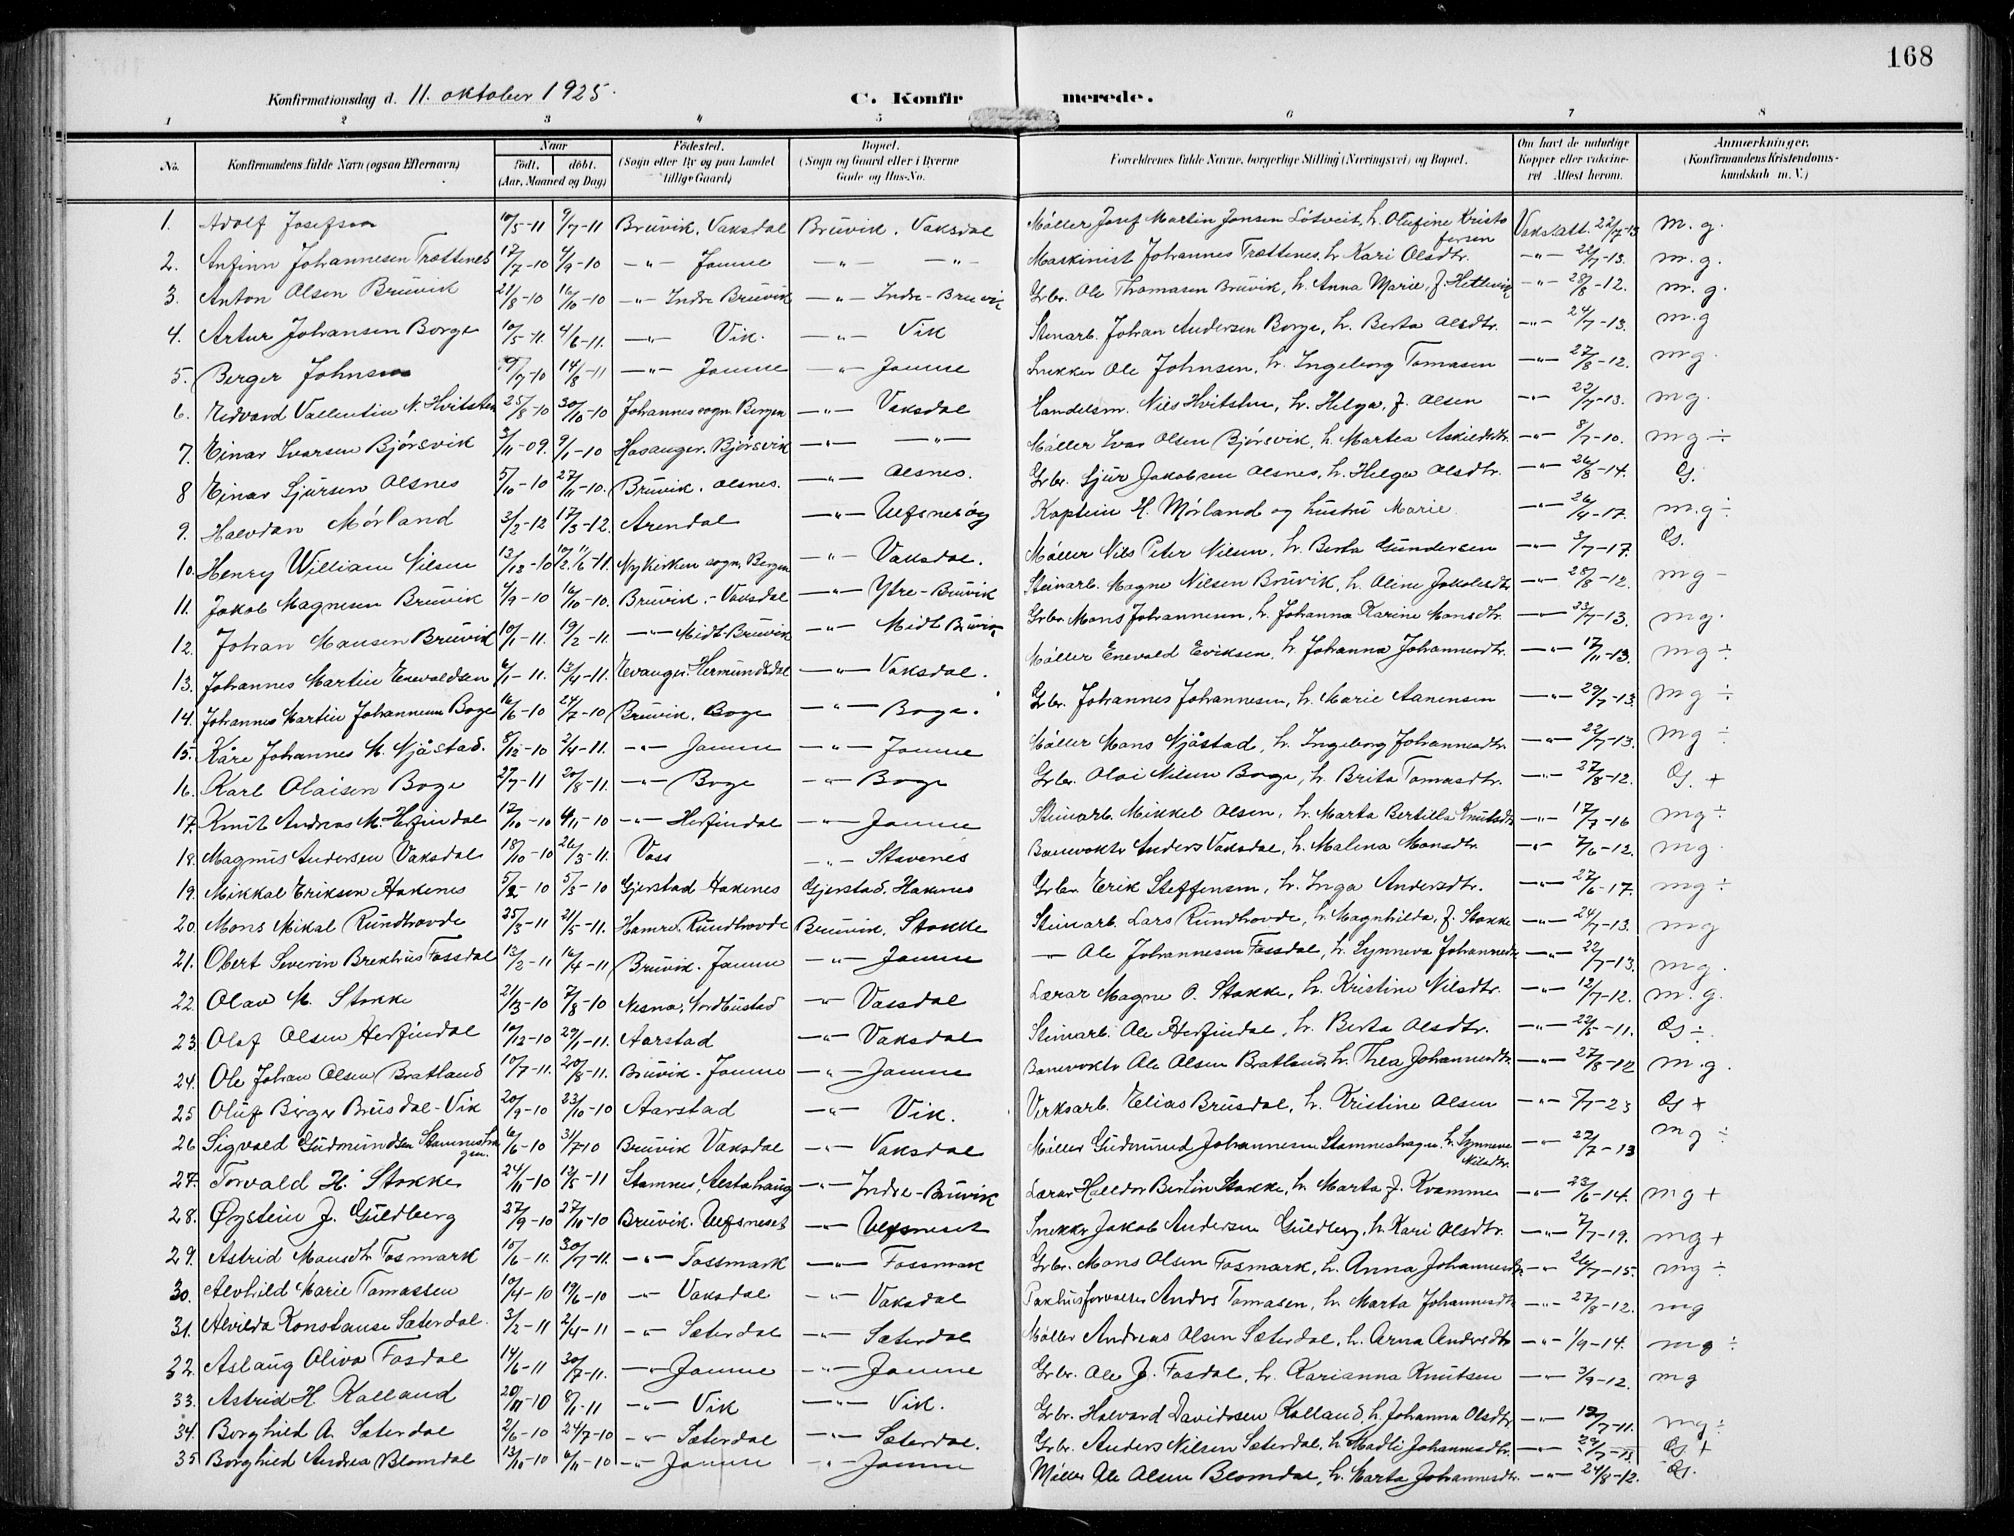 168
Konfirmationsdag d. 11. oktober 1925.
C. Konfirmerede.
1 2 3 4 5 6 7 8
No. | Konfirmandens fulde Navn (ogsaa Efternavn) | Naar født, døbt. (Aar, Maaned og Dag) | Fødested. (Sogn eller By og paa Landet tillige Gaard) | Bopæl. (Sogn og Gaard eller i Byerne Gade og Hus-No. | Forældrenes fulde Navne, borgerlige Stilling (Næringsvei) og Bopæl. | Om havt de naturlige Kopper eller vaccineret Attest herom. | Anmærkninger. (Konfirmandens Kristendomskundskab m. V.)
1. Adolf Josefson 10/5-11 9/7-11 Bruvik, Vaksdal Bruvik, Vaksdal Møller Josef Martin Jonsen Løtveit, h. Olufine Kristofersen Vaks.att. 22/7-13 m.g.
2. Anfinn Johannesen Trættenes 17/7-10 4/9-10 -"- Jamne -"- -"- Maskinist Johannes Trættenes, h. Kari Olsdtr. -"- 22/7-13. m.g.
3. Anton Olsen Bruvik 21/8-10 16/10-10 -"- Indre Bruvik -"- Indre-Bruvik Grbr. Ole Thomasen Bruvik, h. Anna Marie, f. Hettevik -"- 28/8-12. m.g.
4. Artur Johansen Borge 10/5-11. 4/6-11. -"- Vik. -"- Vik Steinarb. Johan Andersen Borge, h. Berta Olsdtr. -"- 24/7-13. m.g
5. Berger Johnsen 9/7-10 14/8-11 -"- Jamne -"- Jamne Snekker Ole Johnsen, h. Ingeborg Tomasen -"- 27/8-12. mg.
6. Edvard Vallentin N. Hvitsten 25/8-10 30/10-10 Johannes sogn, Bergen -"- Vaksdal Handelsm. Nils Hvitsten, h. Helga, f. Olsen -"- 22/7-13. mg.
7. Einar Ivarsen Bjørsvik 3/11-09. 9/1-10 Hosanger, Bjørsvik -"- -"- Møller Ivar Olsen Bjørsvik, h. Martea Askildsdtr. -"- 8/7-10. mg ÷
8 Einar Sjursen Olsnes 5/10-10 27/11-10. Bruvik, Olsnes. -"- Olsnes. Grbr. Sjur Jakobsen Olsnes, h. Helga Olsdtr. -"- 26/8-14. G.
9. Halvdan Mørland 3/2-12 17/3-12. Arendal -"- Ulfsnesøy Kaptein H. Mørland og hustru Marie. -"- 26/4-17. m.g ÷
10. Henry William Nilsen 13/12-10 11/6-11. Nykirken sogn, Bergen -"- Vaksdal. Møller Nils Peter Nilsen, h. Berta Gundersen -"- 3/7-17. G.
11. Jakob Magnesen Bruvik 4/9-10 16/10-10. Bruvik.- Vaksdal -"- Ytre-Bruvik Steinarb. Magne Nilsen Bruvik, h. Oline Jakobsdtr -"- 28/8-12. mg -
12. Johan Monsen Bruvik 10/1-11. 19/2-11. -"- Midt-Bruvik -"- Midt Bruvik Grbr. Mons Johannesen, h. Johanna Karine Monsdtr. -"- 23/7-13. mg.
13. Johannes Martin Enevoldsen 6/1-11. 17/4-11. Evanger. Hermundsdal -"- Vaksdal. Møller Enevald Eriksen, h. Johanna Johannesdtr. -"- 17/11-13. mg ÷
14. Johannes Martin Johannesen Boge 16/6-10 24/7-10 Bruvik, Boge -"- Boge. Grbr. Johannes Johannesen, h. Marie Aanensen -"- 29/7-13. mg ÷
15. Kåre Johannes M. Njåstad. 8/12-10 2/4-11. -"- Jamne -"- Jamne Møller Mons Njåstad, h. Ingeborg Johannesdtr. -"- 22/7-13. mg ÷
16. Karl Olaisen Boge 27/7-11 20/8-11. -"- Boge -"- Boge Grbr. Olai Nilsen Boge, h. Brita Tomasdtr. -"- 27/8-12. G. +
17. Knut Andreas M. Herfindal 17/10-10 4/11-10 -"- Herfindal -"- Jamne Steinarb. Mikkel Olsen, h. Marta Bertilla Knutsdtr -"- 17/7-16 mg ÷
18. Magnus Andersen Vaksdal 18/10-10 26/3-11. Voss -"- Stavenes Banevoktr Anders Vaksdal, h. Malena Monsdtr. -"- 7/6-12. mg
19. Mikkal Eriksen Hakenes 5/2-10 5/3-10 Gjerstad Hakenes Gjerstad, Haknes Grbr. Erik Steffensen, h. Inga Andersdtr. -"- 27/6-17. mg ÷
20. Mons Mikal Rundhovde 25/3-11 21/5-11. Hamre, Rundhovde Bruvik, Stokke Steinarb. Lars Rundhovde, h. Magnhilda, f. Stokke -"- 24/7-13. mg
21. Obert Severin Brekhus Fossdal 13/2-11 16/4-11 Bruvik. Jamne -"- Jamne -"- Ole Johannesen Fossdal, h. Synneva Johannesdtr -"- 22/7-13. mg.
22. Olav M. Stokke 21/3-10 7/8-10 Nesna, Nordhustad -"- Vaksdal Lærar Magne O. Stokke, h. Kristine Nilsdtr. -"- 12/7-12. m.g.
23. Olaf Olsen Herfindal 10/12-10 29/1-11. Aarstad -"- Vaksdal Steinarb. Ole Herfindal, h. Berta Olsdtr. -"- 22/5-11. G ÷.
24. Ole Johan Olsen Bratland 10/7-11. 20/8-11. Bruvik. Jamne -"- Jamne Banevoktr Ole Olsen Bratland, h. Thea Johannesdtr. -"- 27/8-12 m.g.
25 Oluf Birger Brusdal-Vik 20/9-10 23/10-10 Aarstad -"- Vik. Verksarb. Elias Brusdal, h. Kristine Olsen -"- 5/7-23 G +
26 Sigvald Gudmundsen Stamneshagen. 6/6-10 31/7-10 Bruvik Vaksdal -"- Vaksdal Møller Gudmund Johannesen Stamneshagen, h. Synneve Nilsdtr. -"- 22/7-13 mg ÷
27. Torvald H. Stokke 24/11-10 13/8-11 Stamnes, Alstahaug -"- Indre-Bruvik Lærar Halldor Berlin Stokke, h. Marta f. Kvamme -"- 23/6-14. mg +
28. Øystein J. Guldberg 27/9-10 27/10-10 Bruvik. Ulfsneset -"- Ulfsneset Snekkr Jakob Andersen Guldberg, h. Kari Olsdtr. -"- 7/7-19. mg +
29. Astrid Monsdtr. Fosmark 15/6-11. 30/7-11. -"- Fossmark -"- Fossmark Grbr. Mons Olsen Fosmark, h. Anna Johannesdtr. -"- 26/7-15. mg ÷
30. Alvhild Marie Tomassen 10/4-10 19/6-10 -"- Vaksdal -"- Vaksdal Pakhusforvalter Andrs Tomasen, h. Marta Johannesdtr -"- 27/8-12. mg
31. Alvilda Konstanse Sæterdal. 3/2-11 2/4-11 -"- Sæterdal -"- Sæterdal Møller Andreas Olsen Sæterdal, h. Arna Andersdtr -"- 1/9-14. mg ÷
32. Aslaug Oliva Fosdal 14/6-11 30/7-11. -"- Jamne -"- Jamne Grbr. Ole J. Fosdal, h. Karianna Knutsen -"- 3/9-12. mg
33. Astrid H Kalland 20/11-10 8/1-11 -"- Vik -"- Vik. Grbr. Halvard Davidssen Kalland, h. Johanna Olsdtr -"- 12/7-11. mg ÷
34. Borghild A. Sæterdal 2/6-10 24/7-10 -"- Sæterdal -"- Sæterdal. Grbr. Anders Nilsen Sæterdal, h. Madli Johannesdtr. -"- 29/7-13 G +
35 Borghild Andrea Blomdal 13/10-10 6/11-10 -"- Jamne -"- Jamne Møller Ole Olsen Blomdal, h. Marta Johannesdtr. -"- 24/8-12. G.